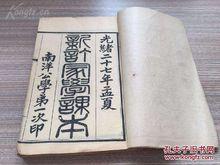 光緒二十七年孟夏
新訂蒙學課本
南洋公學第一次印